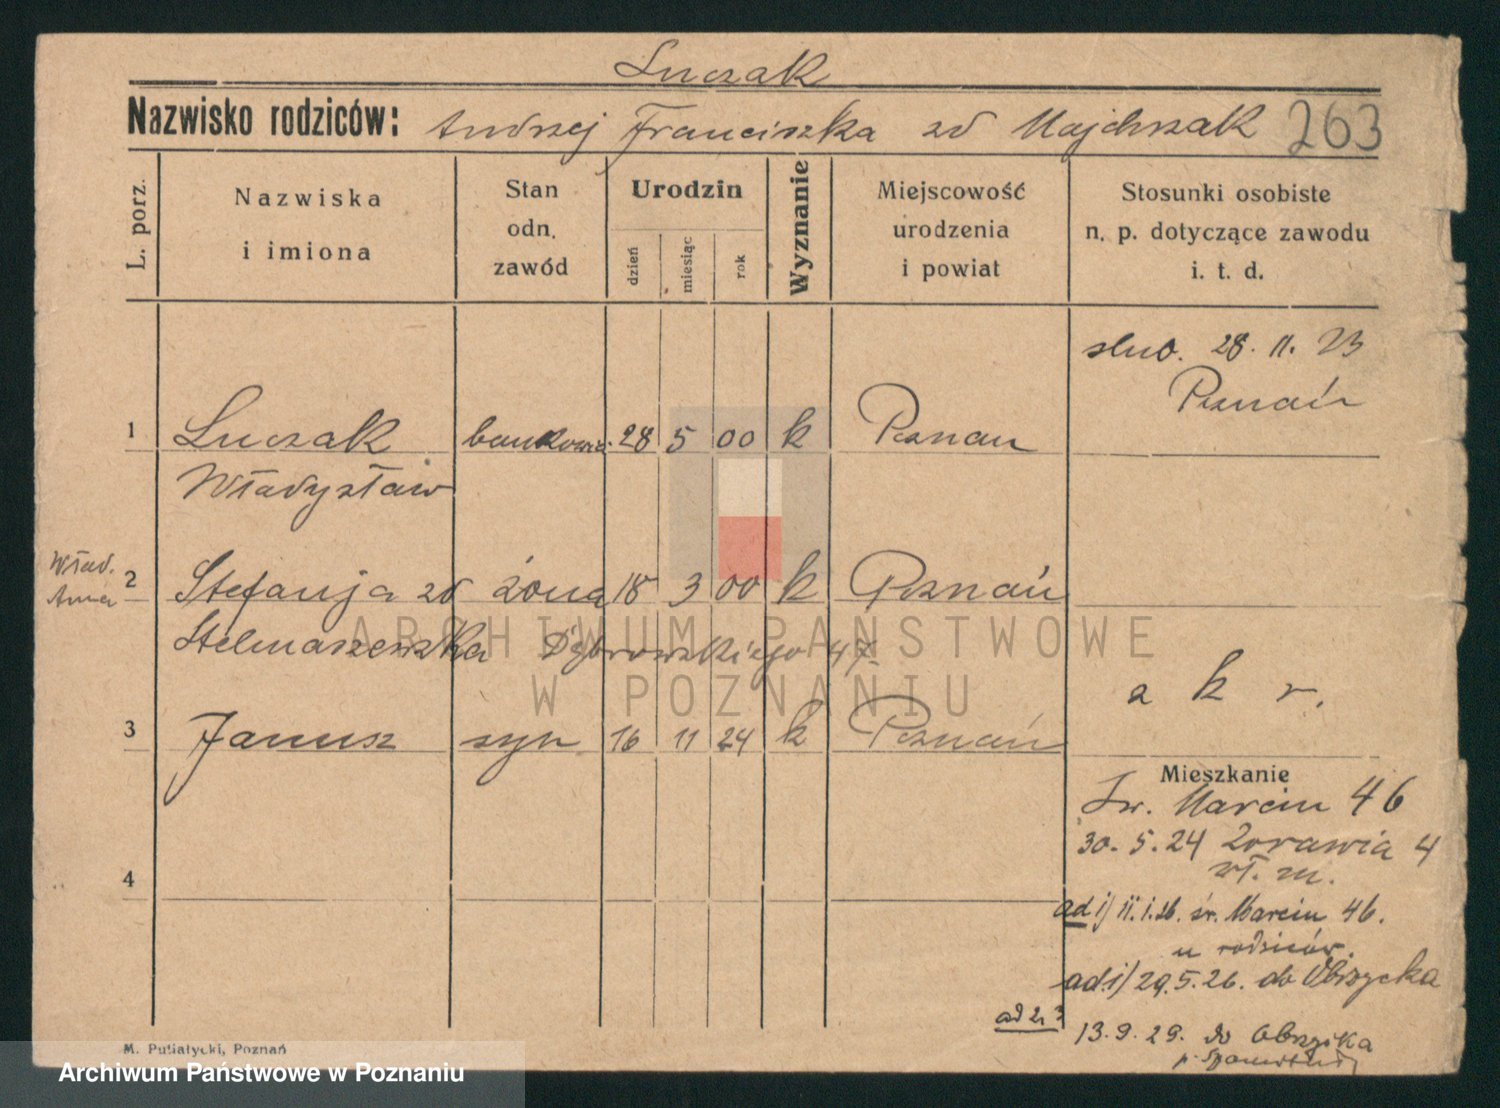 Luczak
Nazwisko rodziców: Andrzej Franciszka zd Majchrzak 263
L. porz.
Nazwiska
i imiona
Stan
odn.
zawód
Urodzin
dzień
miesiąc
rok
Wyznanie
Miejscowość
urodzenia
i powiat
Stosunki osobiste
n. p. dotyczące zawodu
i. t. d.
slub. 28. 11. 23
Poznań
1 Luczak bankowiec 28 5 00 k Poznan
Władysław
Wład. Anna
2 Stefanja zd żona 18 3 00 k Poznań
Stelmaszewska Dąbrowskiego 47.
a k r.
3 Janusz syn 16 11 24 k Poznań
Mieszkanie
Św. Marcin 46
30. 5. 24 Zorawia 4
wł. m.
4
ad 1/ 11. 1. 26. św. Marcin 46.
u rodziców.
ad 1/ 29. 5. 26. do Obrzycka
ad 2, 3
13. 9. 29. do Obrzycka
M. Putiatycki, Poznań
ARCHIWUM PAŃSTWOWE
W POZNANIU
Archiwum Państwowe w Poznaniu